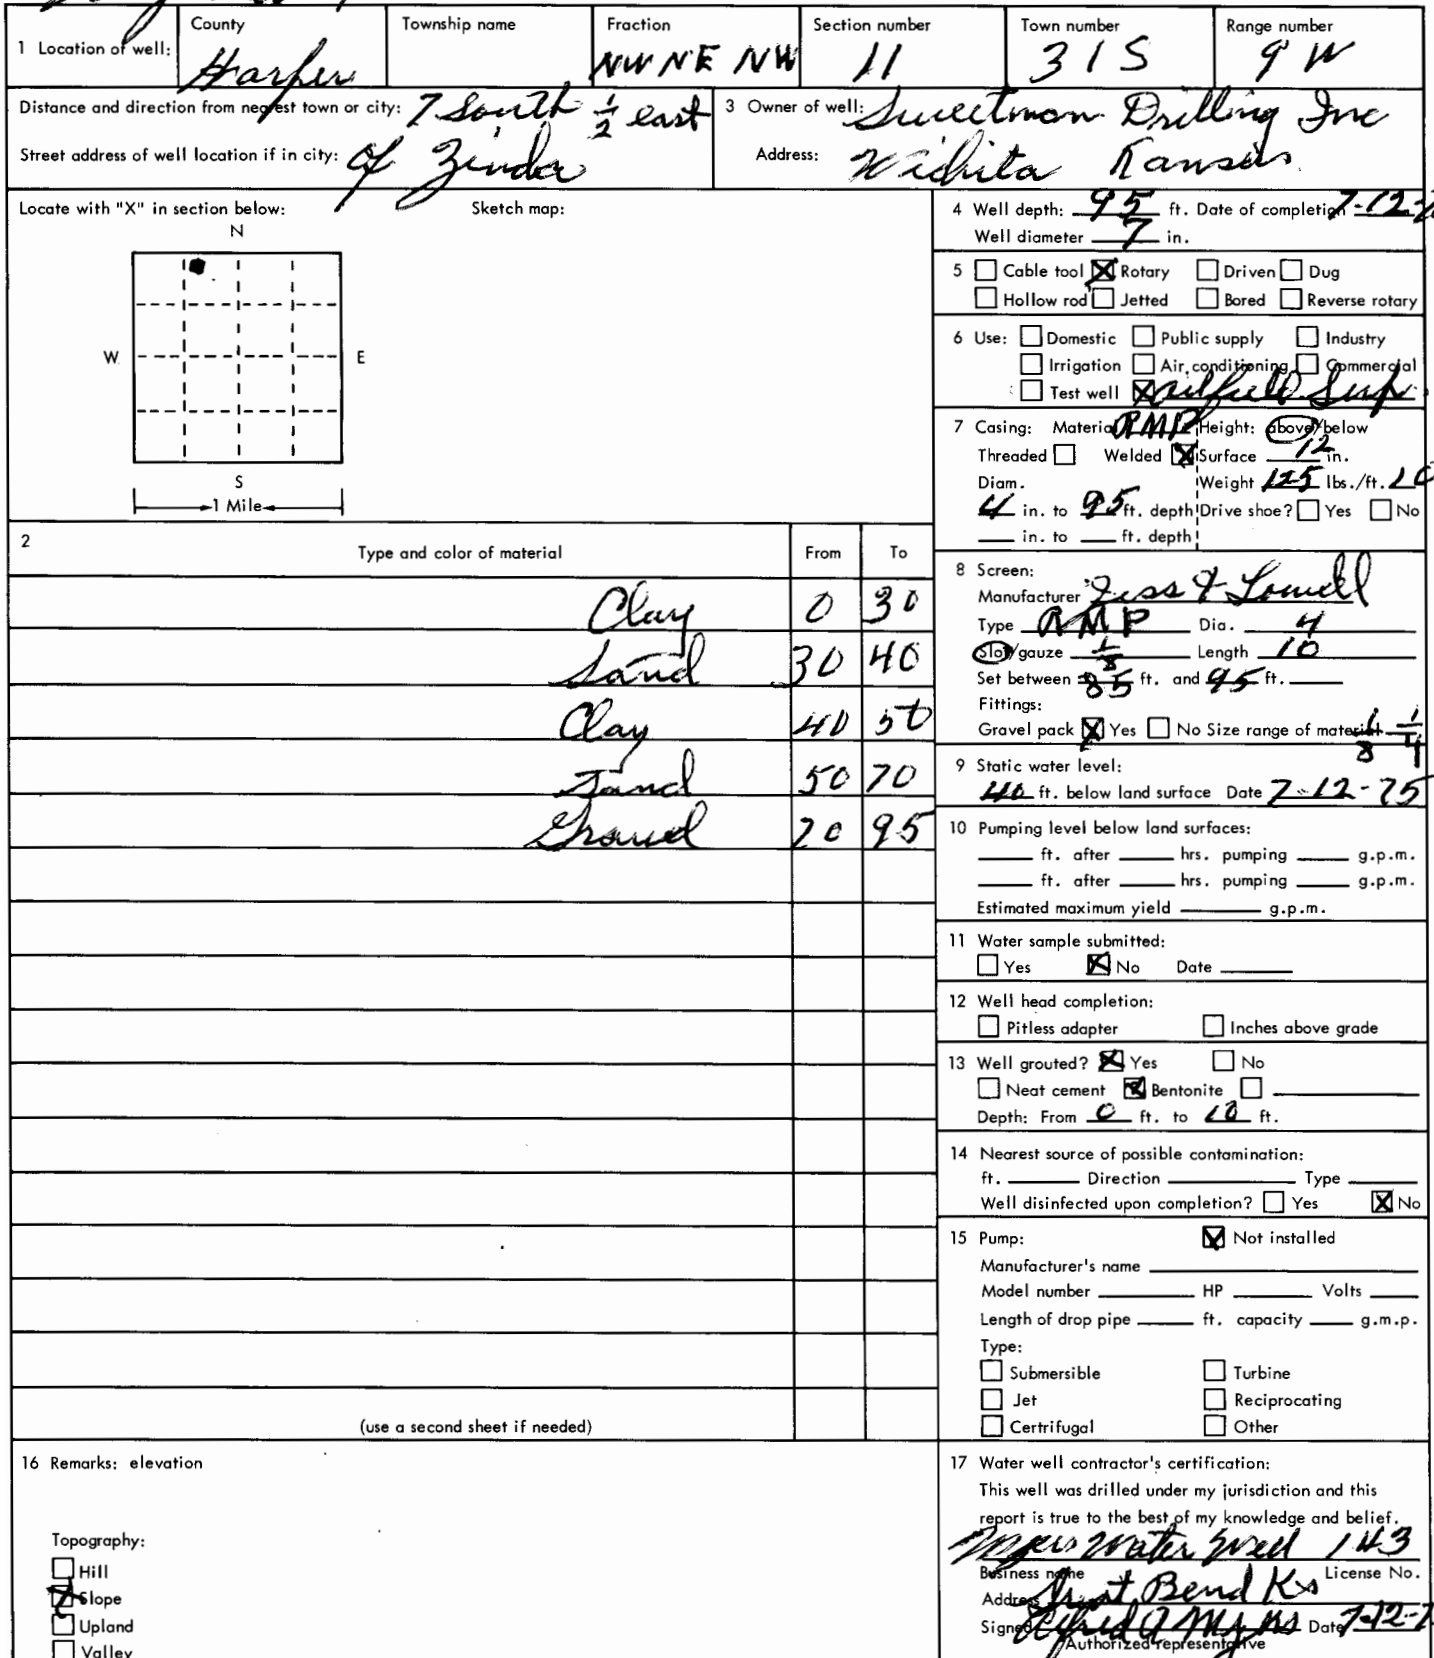 County Township name Fraction Section number Town number Range number
1 Location of well: Harper NW NE NW 11 31S 9W
Distance and direction from nearest town or city: 7 South 1/2 east
Street address of well location if in city: of Zenda
3 Owner of well: Sweetman Drilling Inc
Address: Wichita Kansas
Locate with "X" in section below: Sketch map:
N
W E
S
1 Mile
4 Well depth: 95 ft. Date of completion 7-12-
Well diameter 7 in.
5 Cable tool X Rotary Driven Dug
Hollow rod Jetted Bored Reverse rotary
6 Use: Domestic Public supply Industry
Irrigation Air conditioning Commercial
Test well X oilfield Sup
7 Casing: Material RMP Height: above/below
Threaded Welded X Surface 12 in.
Diam. Weight 125 lbs./ft.
4 in. to 95 ft. depth Drive shoe? Yes No
in. to ft. depth
2 Type and color of material From To
Clay 0 30
Sand 30 40
Clay 40 50
Sand 50 70
Gravel 70 95
(use a second sheet if needed)
8 Screen:
Manufacturer Jess & Lowell
Type RMP Dia. 4
Slot/gauze 1/8 Length 10
Set between 85 ft. and 95 ft.
Fittings:
Gravel pack X Yes No Size range of material 1/8 1/4
9 Static water level:
40 ft. below land surface Date 7-12-75
10 Pumping level below land surfaces:
ft. after hrs. pumping g.p.m.
ft. after hrs. pumping g.p.m.
Estimated maximum yield g.p.m.
11 Water sample submitted:
Yes X No Date
12 Well head completion:
Pitless adapter Inches above grade
13 Well grouted? X Yes No
Neat cement X Bentonite
Depth: From 0 ft. to 10 ft.
14 Nearest source of possible contamination:
ft. Direction Type
Well disinfected upon completion? Yes X No
15 Pump: X Not installed
Manufacturer's name
Model number HP Volts
Length of drop pipe ft. capacity g.m.p.
Type:
Submersible Turbine
Jet Reciprocating
Certrifugal Other
16 Remarks: elevation
Topography:
Hill
X Slope
Upland
Valley
17 Water well contractor's certification:
This well was drilled under my jurisdiction and this
report is true to the best of my knowledge and belief.
Myers Water Well 143
Business name License No.
Address Great Bend Ks
Signed Alfred A Myers Date 7-12-
Authorized representative